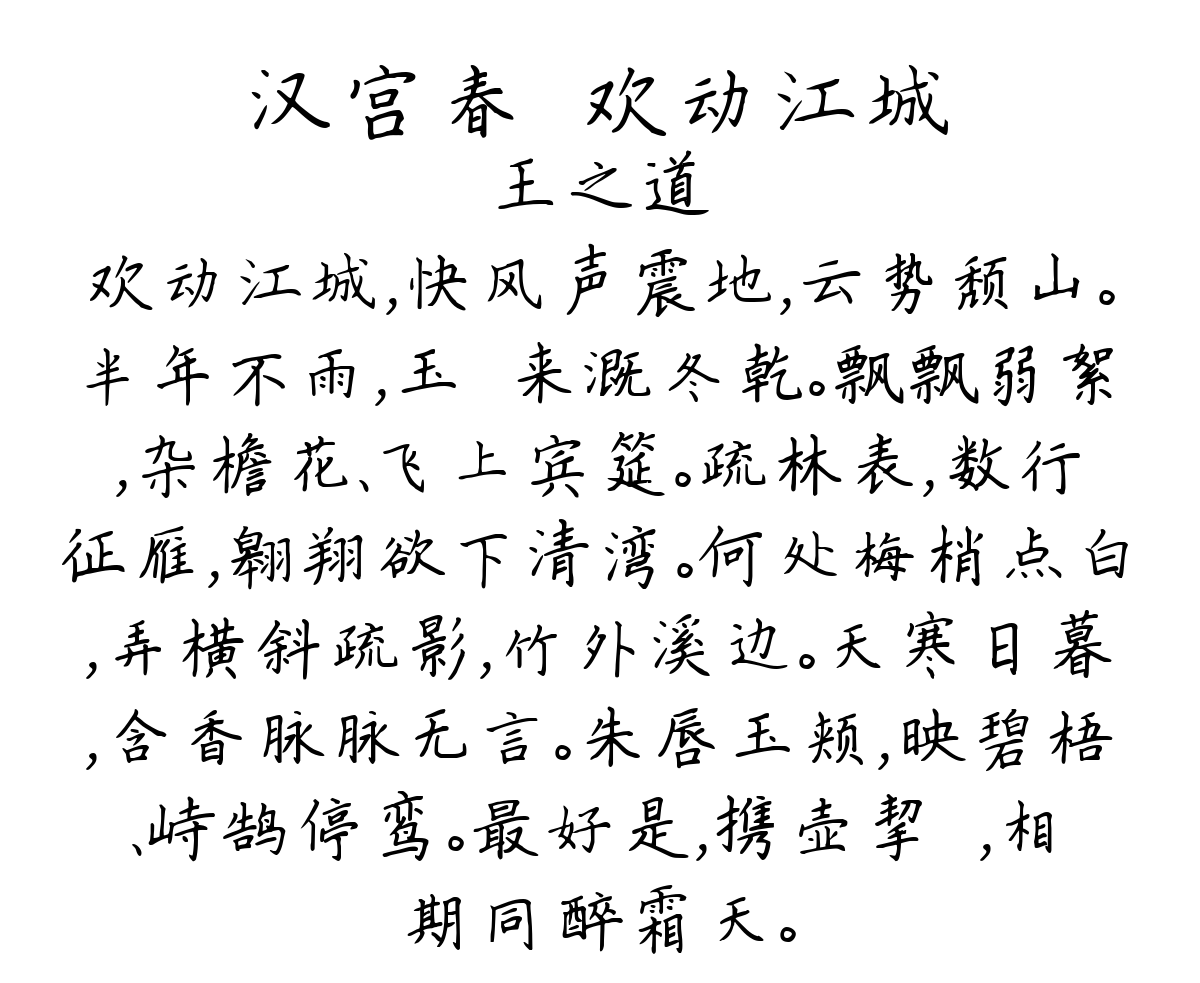 汉宫春 欢动江城
王之道
欢动江城,快风声震地,云势颓山。
半年不雨,玉 来溉冬乾。飘飘弱絮
,杂檐花、飞上宾筵。疏林表,数行
征雁,翱翔欲下清湾。何处梅梢点白
,弄横斜疏影,竹外溪边。天寒日暮
,含香脉脉无言。朱唇玉颊,映碧梧
、峙鹄停鸾。最好是,携壶挈 ,相
期同醉霜天。